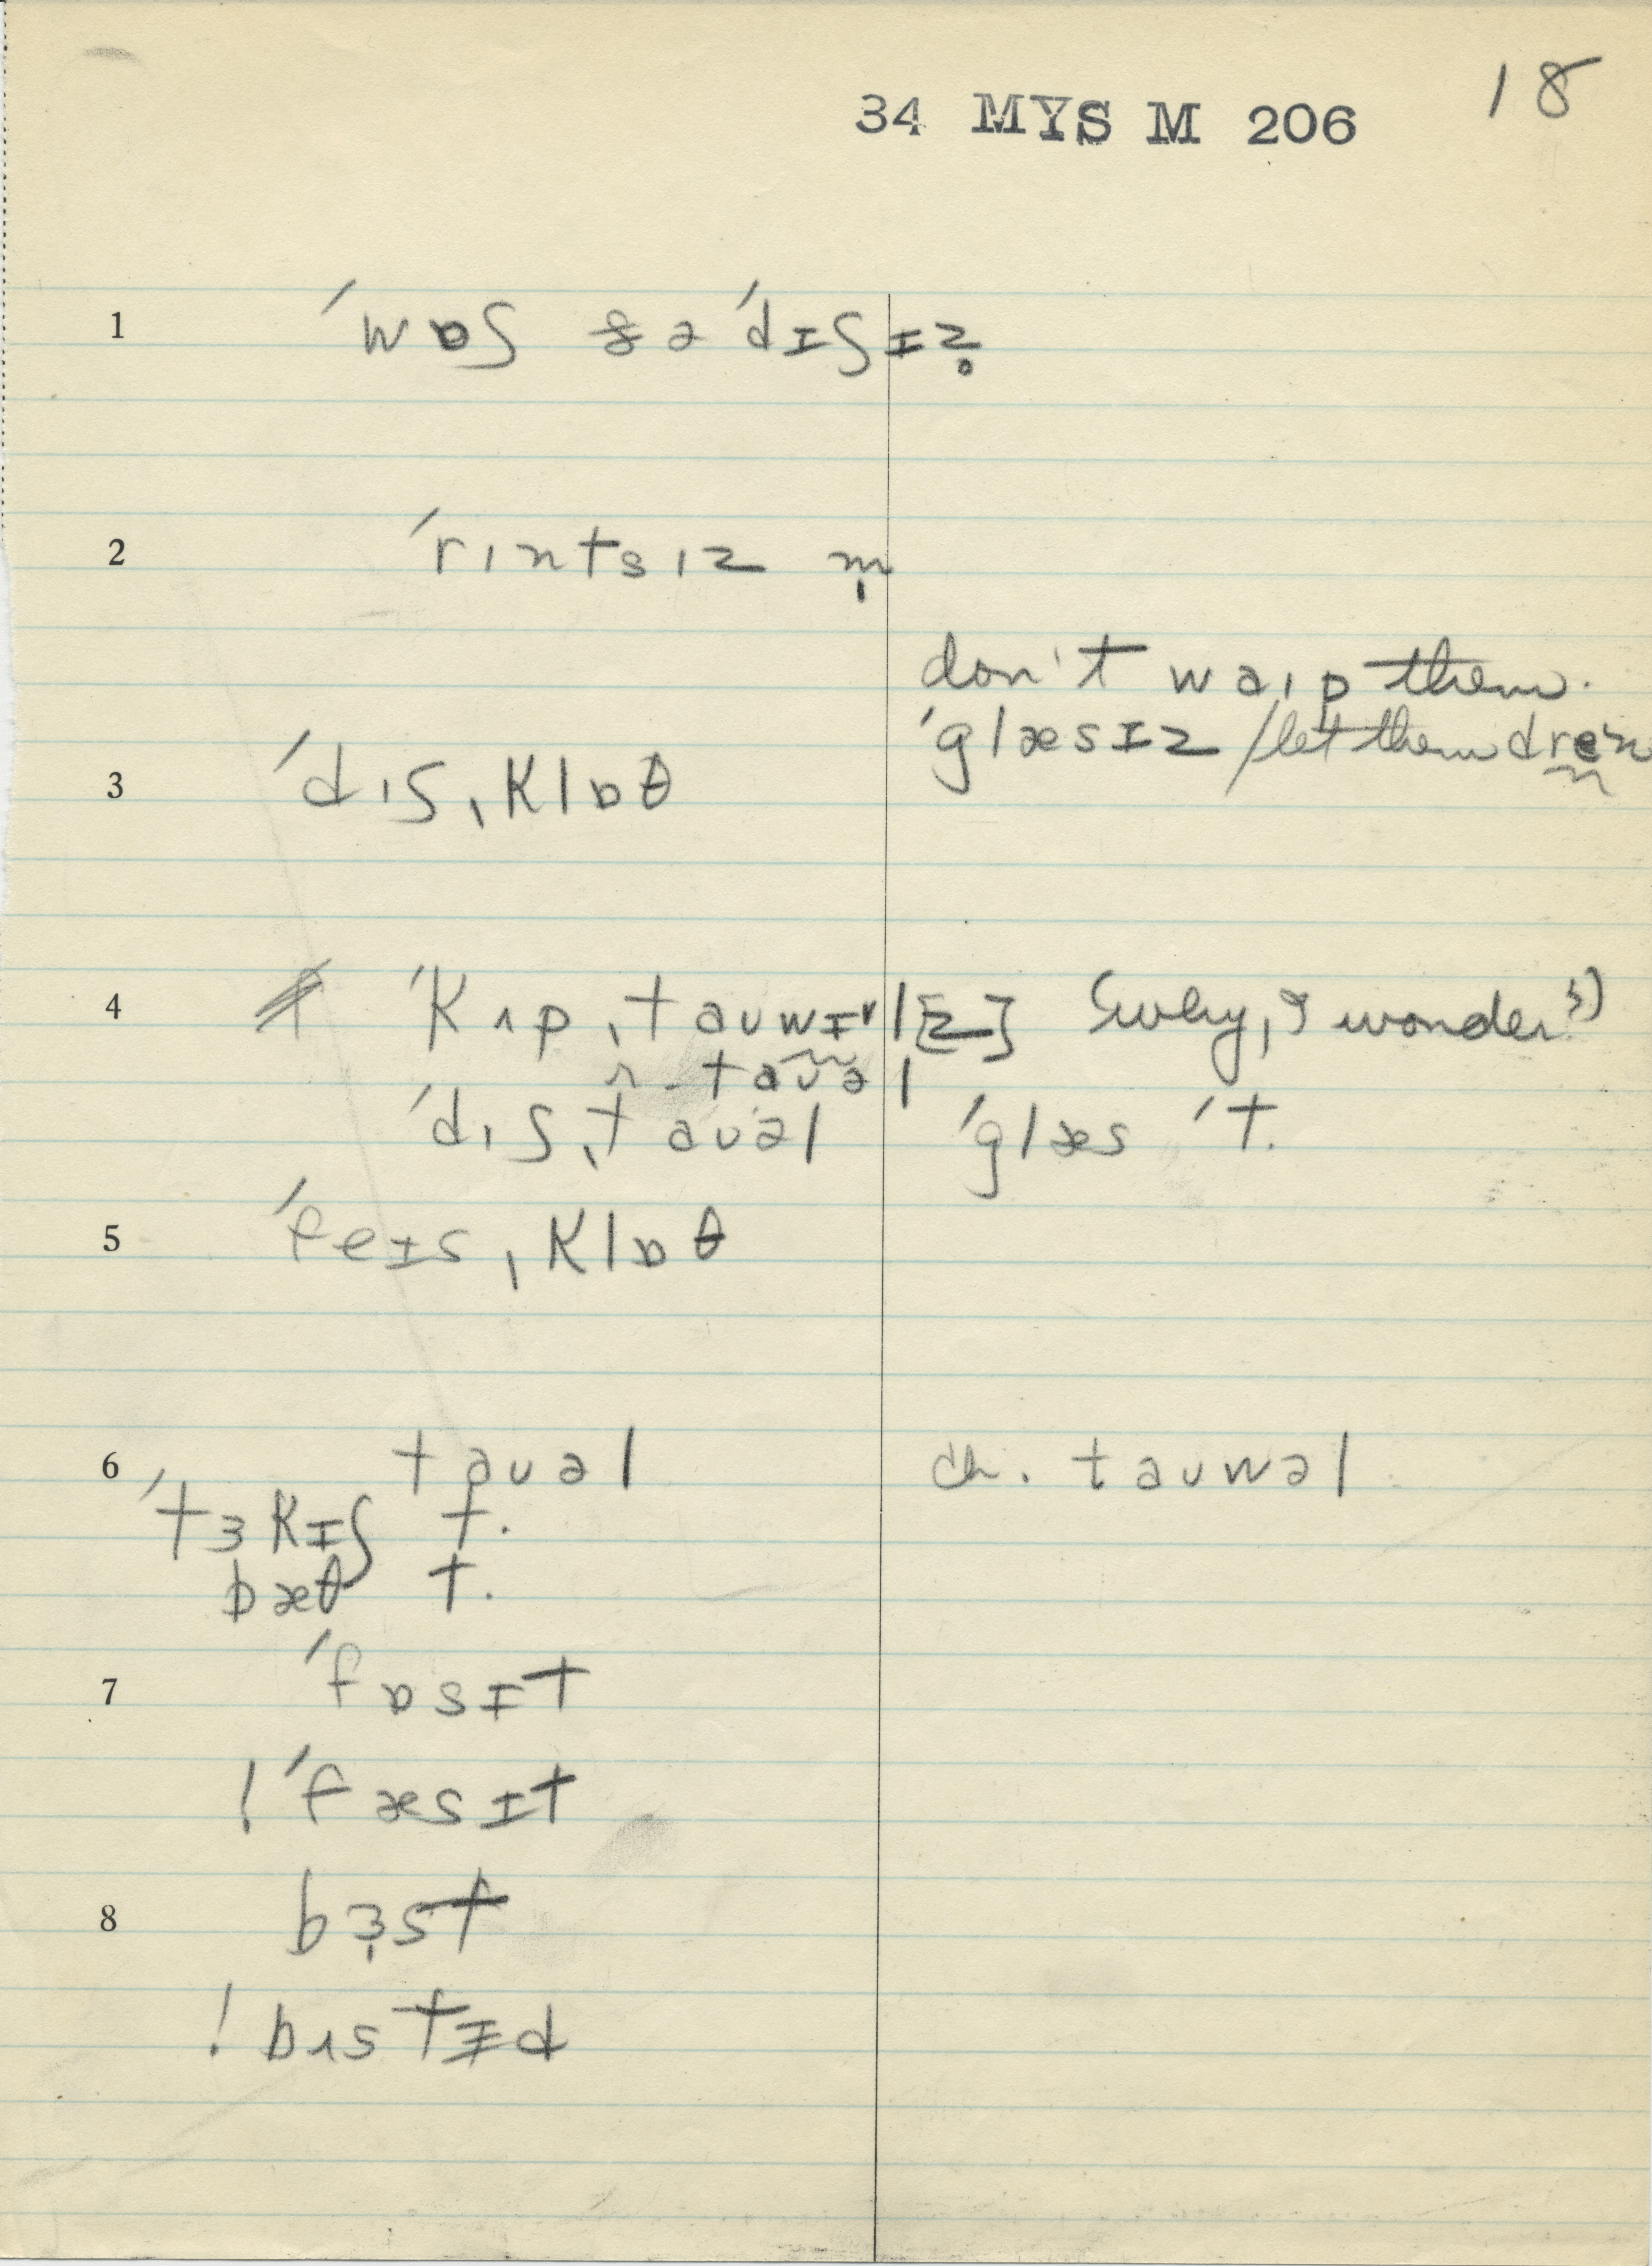 18
34 MYS M 206
1 ˈwɒʃ ðə ˈdɪʃɪz̥
2 ˈrɪntsɪz m̩
don't waɪp them.
ˈglæsɪz / let them dreɪn
3 ˈdɪʃˌklɒθ
4 ˈkʌpˌtaʊwɪrl[z] (why, I wonder?)
ˈdɪʃˌtaʊəl ˈglæs ˈt.
5 ˈfeɪsˌklɒθ
6 taʊəl ch. taʊwəl
ˈtɜkɪʃ t.
bæθ t.
7 ˈfɒsɪt
! ˈfæsɪt
8 bɜst
! bʌstɪd